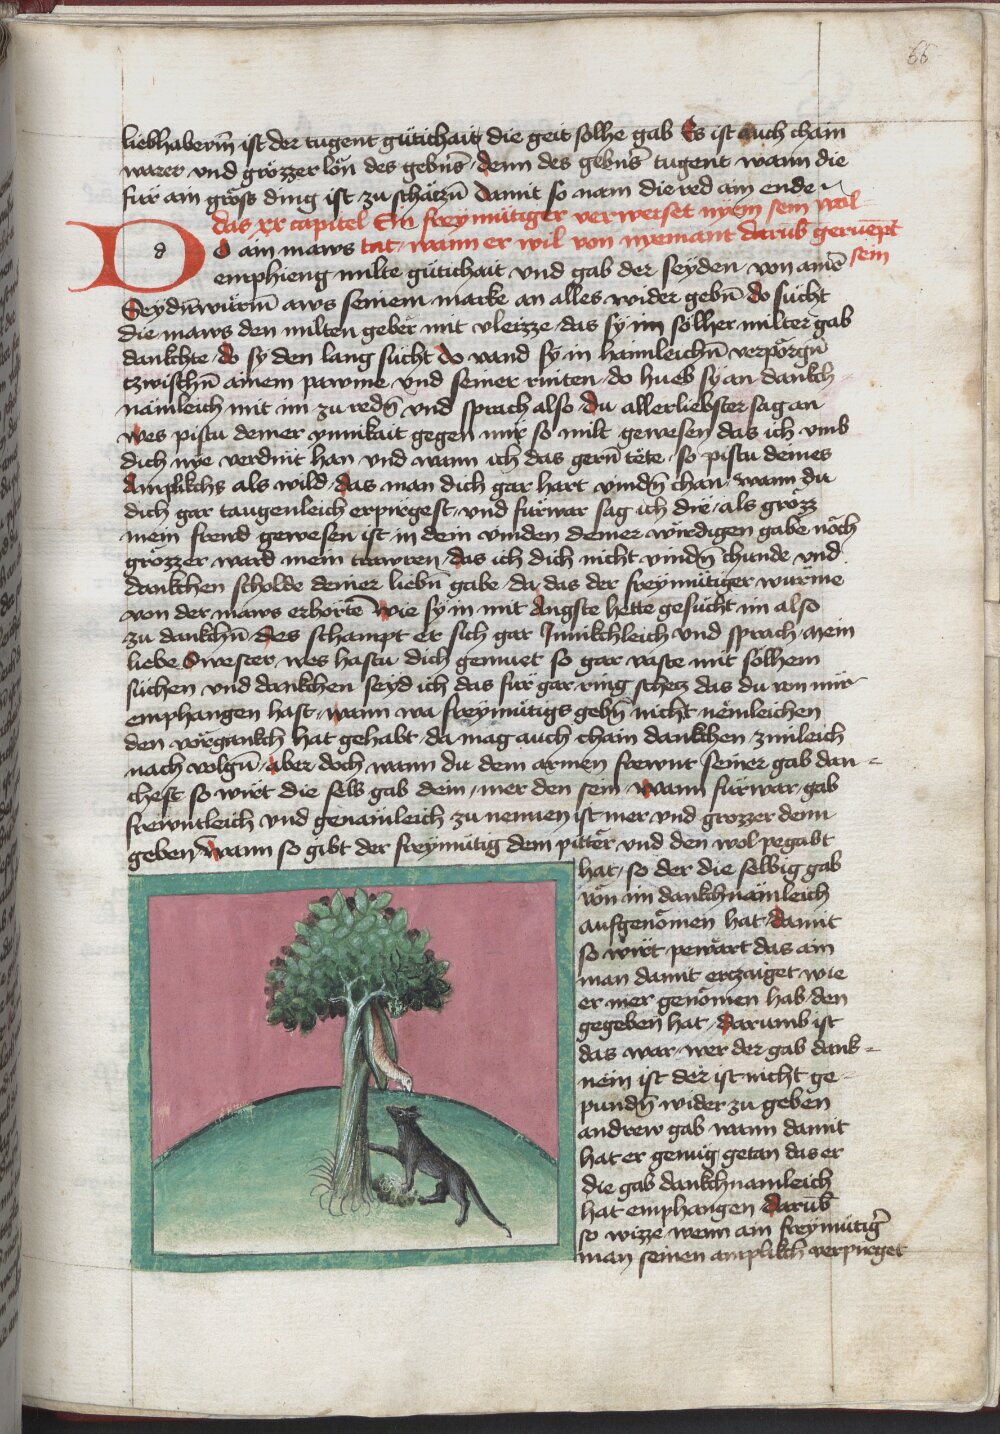 66
liebhaberin̄ ist der tugent gütichait die geit solhe gab Es ist auch chain
warer und grözzer lön des gebn̄s denn des gebn̄s tugent wann die
für ain gröss ding ist zu schätzn̄ Damit so nam die red ain ende
das xx capitel Ein freymütiger verwerset nÿem sein wol
tat wann er wil von nyemant darüb gerüempt
sein
Do ain maws
emphieng milte gütichait und gab der seyden von ainē
Seydn̄würm̄ aws seinem marke an alles wider gebn̄ do sücht
die maws den milten geber mit vleizze das sy im solher milter gab
dankchte do sy den lang sücht do vand sy in haimleichn̄ verporgn̄
tzwischn̄ ainem pawme und seiner rinten do hueb sy an dankch
nämleich mit im zu redn̄ und sprach also du allerliebster sag an
wes pistu deiner ynnikait gegen mir so milt gewesen das ich umb
dich nye verdint han und wann ich das gern̄ tëte so pistu deines
Amplikchs als wild das man dich gar hart vindn̄ chan wann du
dich gar taugenleich erpirgest und fürwar sag ich dir als grözz
mein frewd gewesen ist in dein vinden deiner wirdigen gabe nöch
grözzer ward mein trawren das ich dich nicht vindn̄ chunde und
dankchen scholde deiner liebn̄ gabe da das der freymütiger würme
von der maws erhortē wie sy in mit Angste hette gesücht im also
zu dankchn̄ des schampt er sich gar Innikchleich und sprach mein
liebe Swester wes hastu dich gemuet so gar vaste mit sölhem
süchen und dankchen seyd ich das für gar ring schecz das du von mir
emphangen hast wann wa freymütigs gebn̄ nicht nëmleichen
den vorgankch hat gehabt da mag auch chain dankchen zimleich
nach volgn̄ aber doch wann du dem armen frewnt seiner gab dan
chest so wirt die selb gab dein mer den sein wann fürwar gab
frewntleich und genämleich zu nemen ist mer und grozzer denn
geben wann so gibt der freymütig dem pitter und den wol pegabt
hat so der die selbig gab
von im dankchnämleich
aufgenömen hat damit
so wirt pewart das ain
man damit erczaiget wie
er mer genömen hab den
gegeben hat darumb ist
das war wer der gab dank
nëm ist der ist nicht ge
pundn̄ wider zu geben
andrew gab wann damit
hat er genüg getan das er
die gab dankchnamleich
hat emphangen darüb
so wizze wenn ain freymütigr̄
man seinen amplikch verpirget